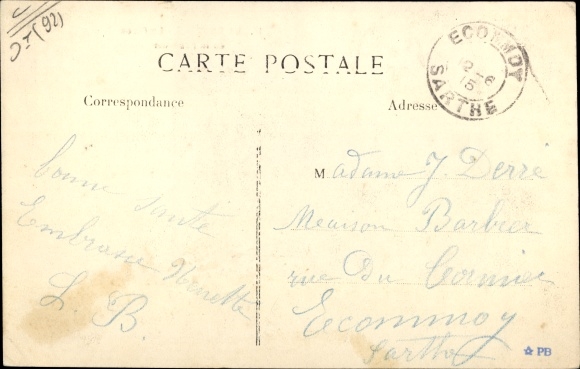 (92)
CARTE POSTALE
ECOMMOY
12-6
15
SARTHE
Correspondance
Adresse
bonne santé
Embrasse
L. B.
Madame J. Derré
Maison Barbier
rue du
Ecommoy
Sarthe
PB